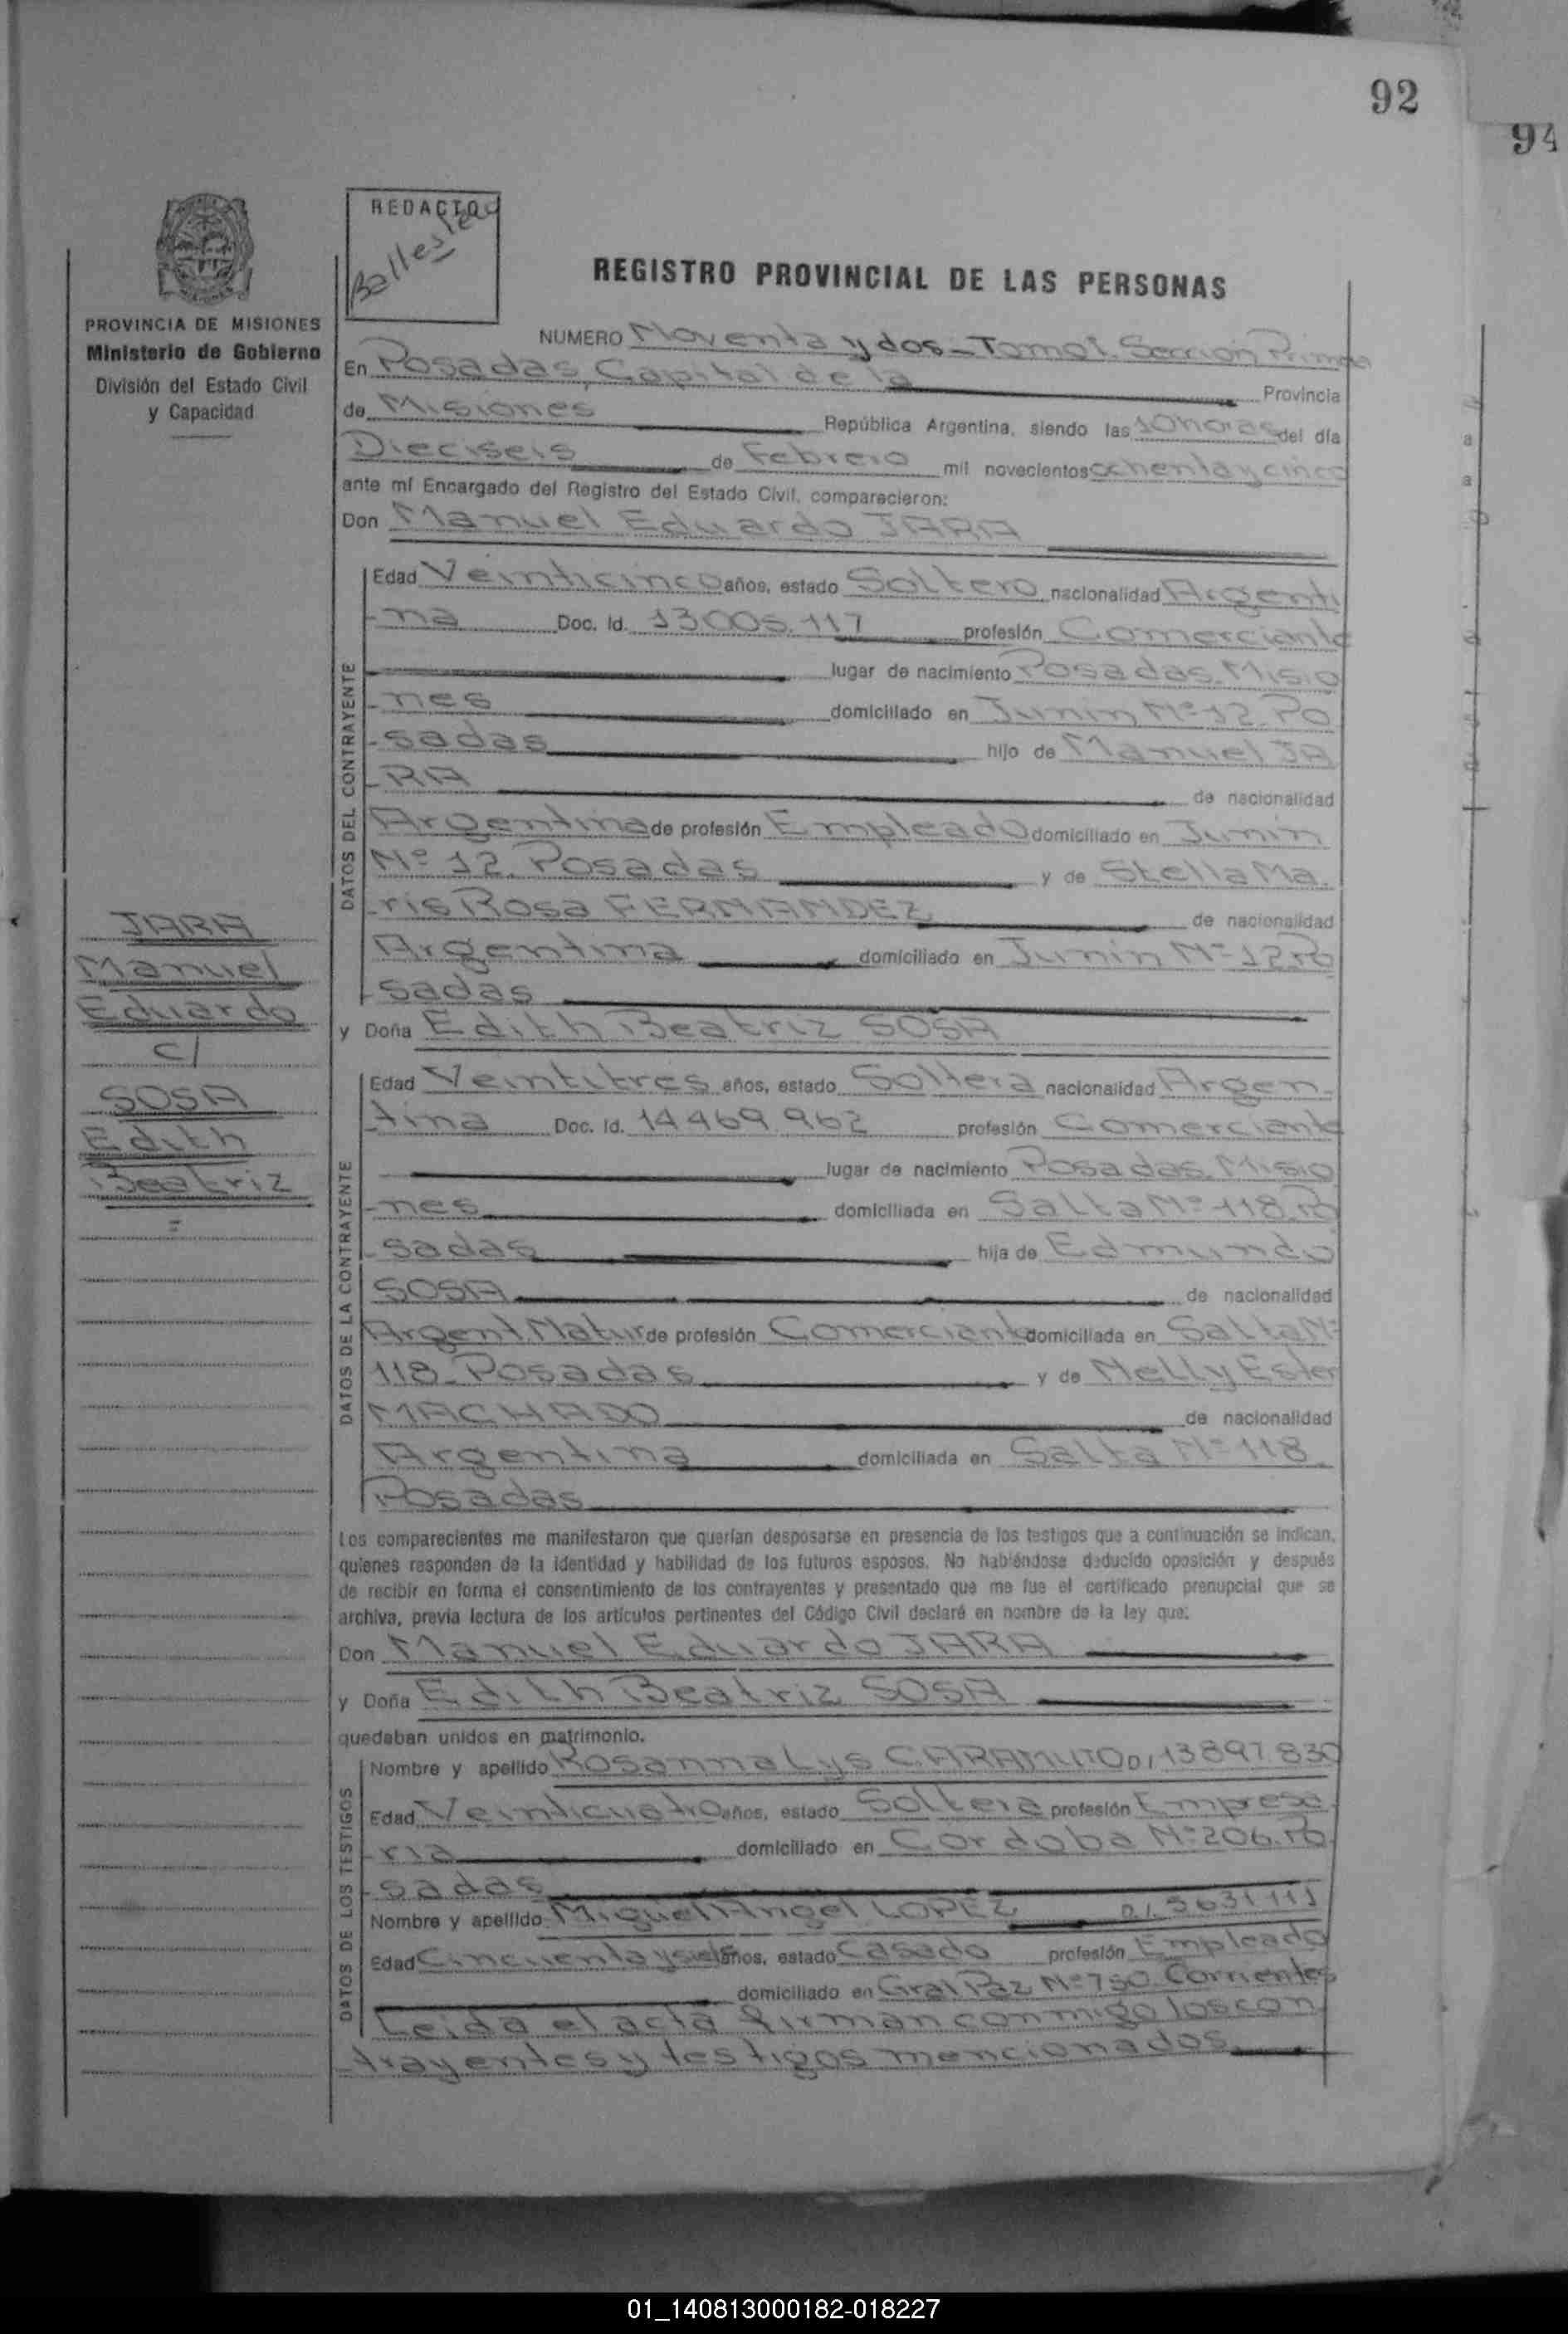 92
94
REDACTOR
Ballester
REGISTRO PROVINCIAL DE LAS PERSONAS
PROVINCIA DE MISIONES
Ministerio de Gobierno
División del Estado Civil
y Capacidad
NUMERO Noventa y dos - Tomo I. Seccion Primera
En Posadas, Capital de la Provincia
de Misiones República Argentina, siendo las 10 horas del día
Dieciseis de Febrero mil novecientos ochenta y cinco
ante mí Encargado del Registro del Estado Civil, comparecieron:
Don Manuel Eduardo JARA
DATOS DEL CONTRAYENTE
Edad Veinticinco años, estado Soltero nacionalidad Argenti
-na Doc. Id. 13.005.117 profesión Comerciante
lugar de nacimiento Posadas. Misio
-nes domiciliado en Junin Nº 12. Po
-sadas hijo de Manuel JA
-RA de nacionalidad
Argentina de profesión Empleado domiciliado en Junin
Nº 12. Posadas y de Stella Ma.
-ris Rosa FERNANDEZ de nacionalidad
Argentina domiciliado en Junin Nº 12. Po
-sadas
y Doña Edith Beatriz SOSA
JARA
Manuel
Eduardo
c/
SOSA
Edith
Beatriz
=
DATOS DE LA CONTRAYENTE
Edad Veintitres años, estado Soltera nacionalidad Argen-
-tina Doc. Id. 14.469.962 profesión Comerciante
lugar de nacimiento Posadas. Misio
-nes domiciliada en Salta Nº 118. Po
-sadas hija de Edmundo
SOSA de nacionalidad
Argent. Natur de profesión Comerciante domiciliada en Salta Nº
118 - Posadas y de Nelly Ester
MACHADO de nacionalidad
Argentina domiciliada en Salta Nº 118.
Posadas
Los comparecientes me manifestaron que querían desposarse en presencia de los testigos que a continuación se indican,
quienes responden de la identidad y habilidad de los futuros esposos. No habiéndose deducido oposición y después
de recibir en forma el consentimiento de los contrayentes y presentado que me fue el certificado prenupcial que se
archiva, previa lectura de los artículos pertinentes del Código Civil declaré en nombre de la ley que:
Don Manuel Eduardo JARA
y Doña Edith Beatriz SOSA
quedaban unidos en matrimonio.
DATOS DE LOS TESTIGOS
Nombre y apellido Rosanna Lys CARAMUTO D.I 13.897.830
Edad Veinticuatro años, estado Soltera profesión Empresa
-ria domiciliado en Cordoba Nº 206. Po
-sadas
Nombre y apellido Miguel Angel LOPEZ D.I. 5631111
Edad Cincuenta y seis años, estado Casado profesión Empleado
domiciliado en Gral Paz Nº 750. Corrientes
Leida el acta firman conmigo los con
-trayentes y testigos mencionados
01_140813000182-018227